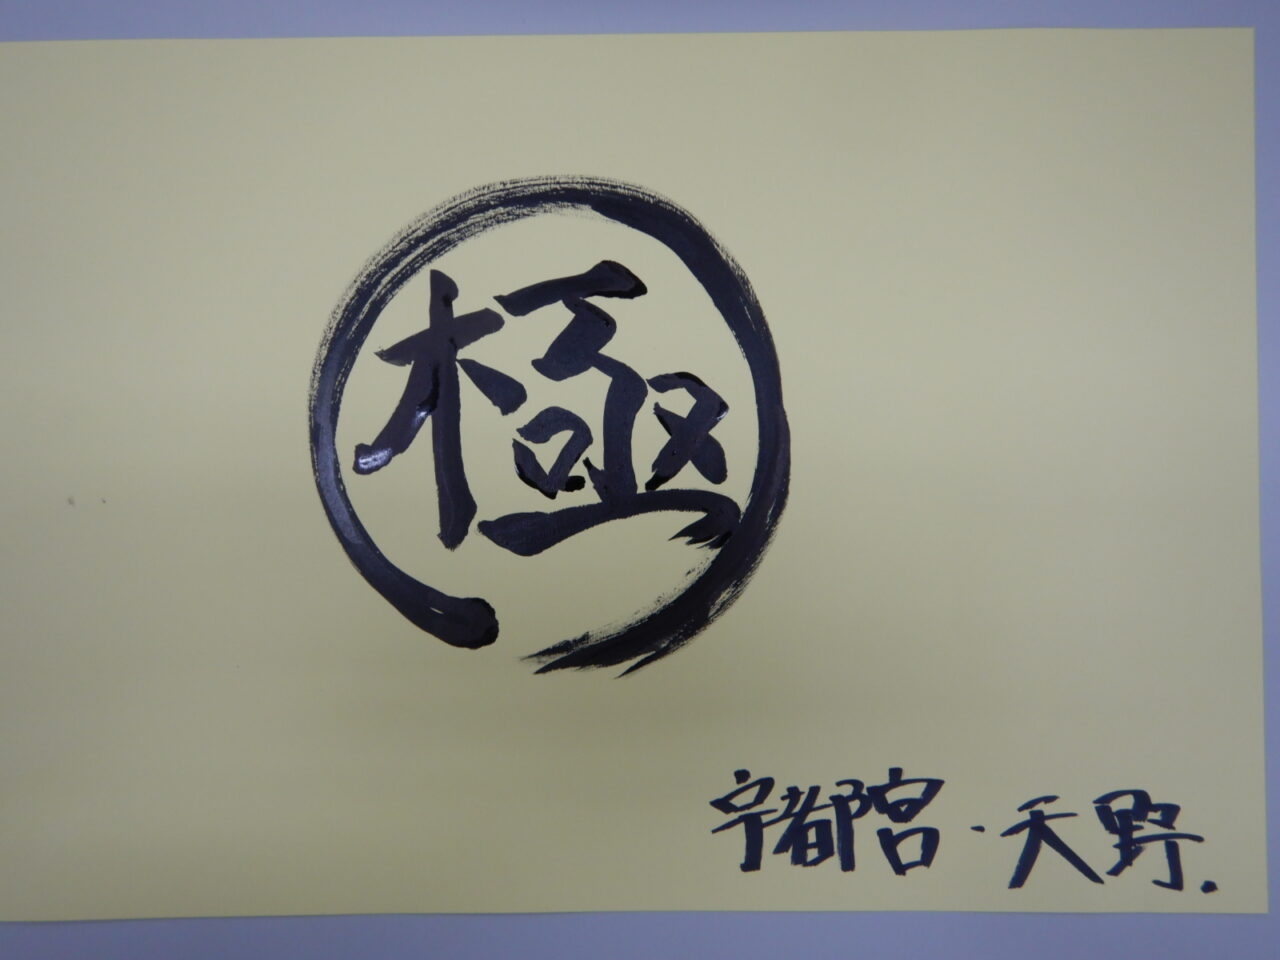 極
宇都宮・天野.